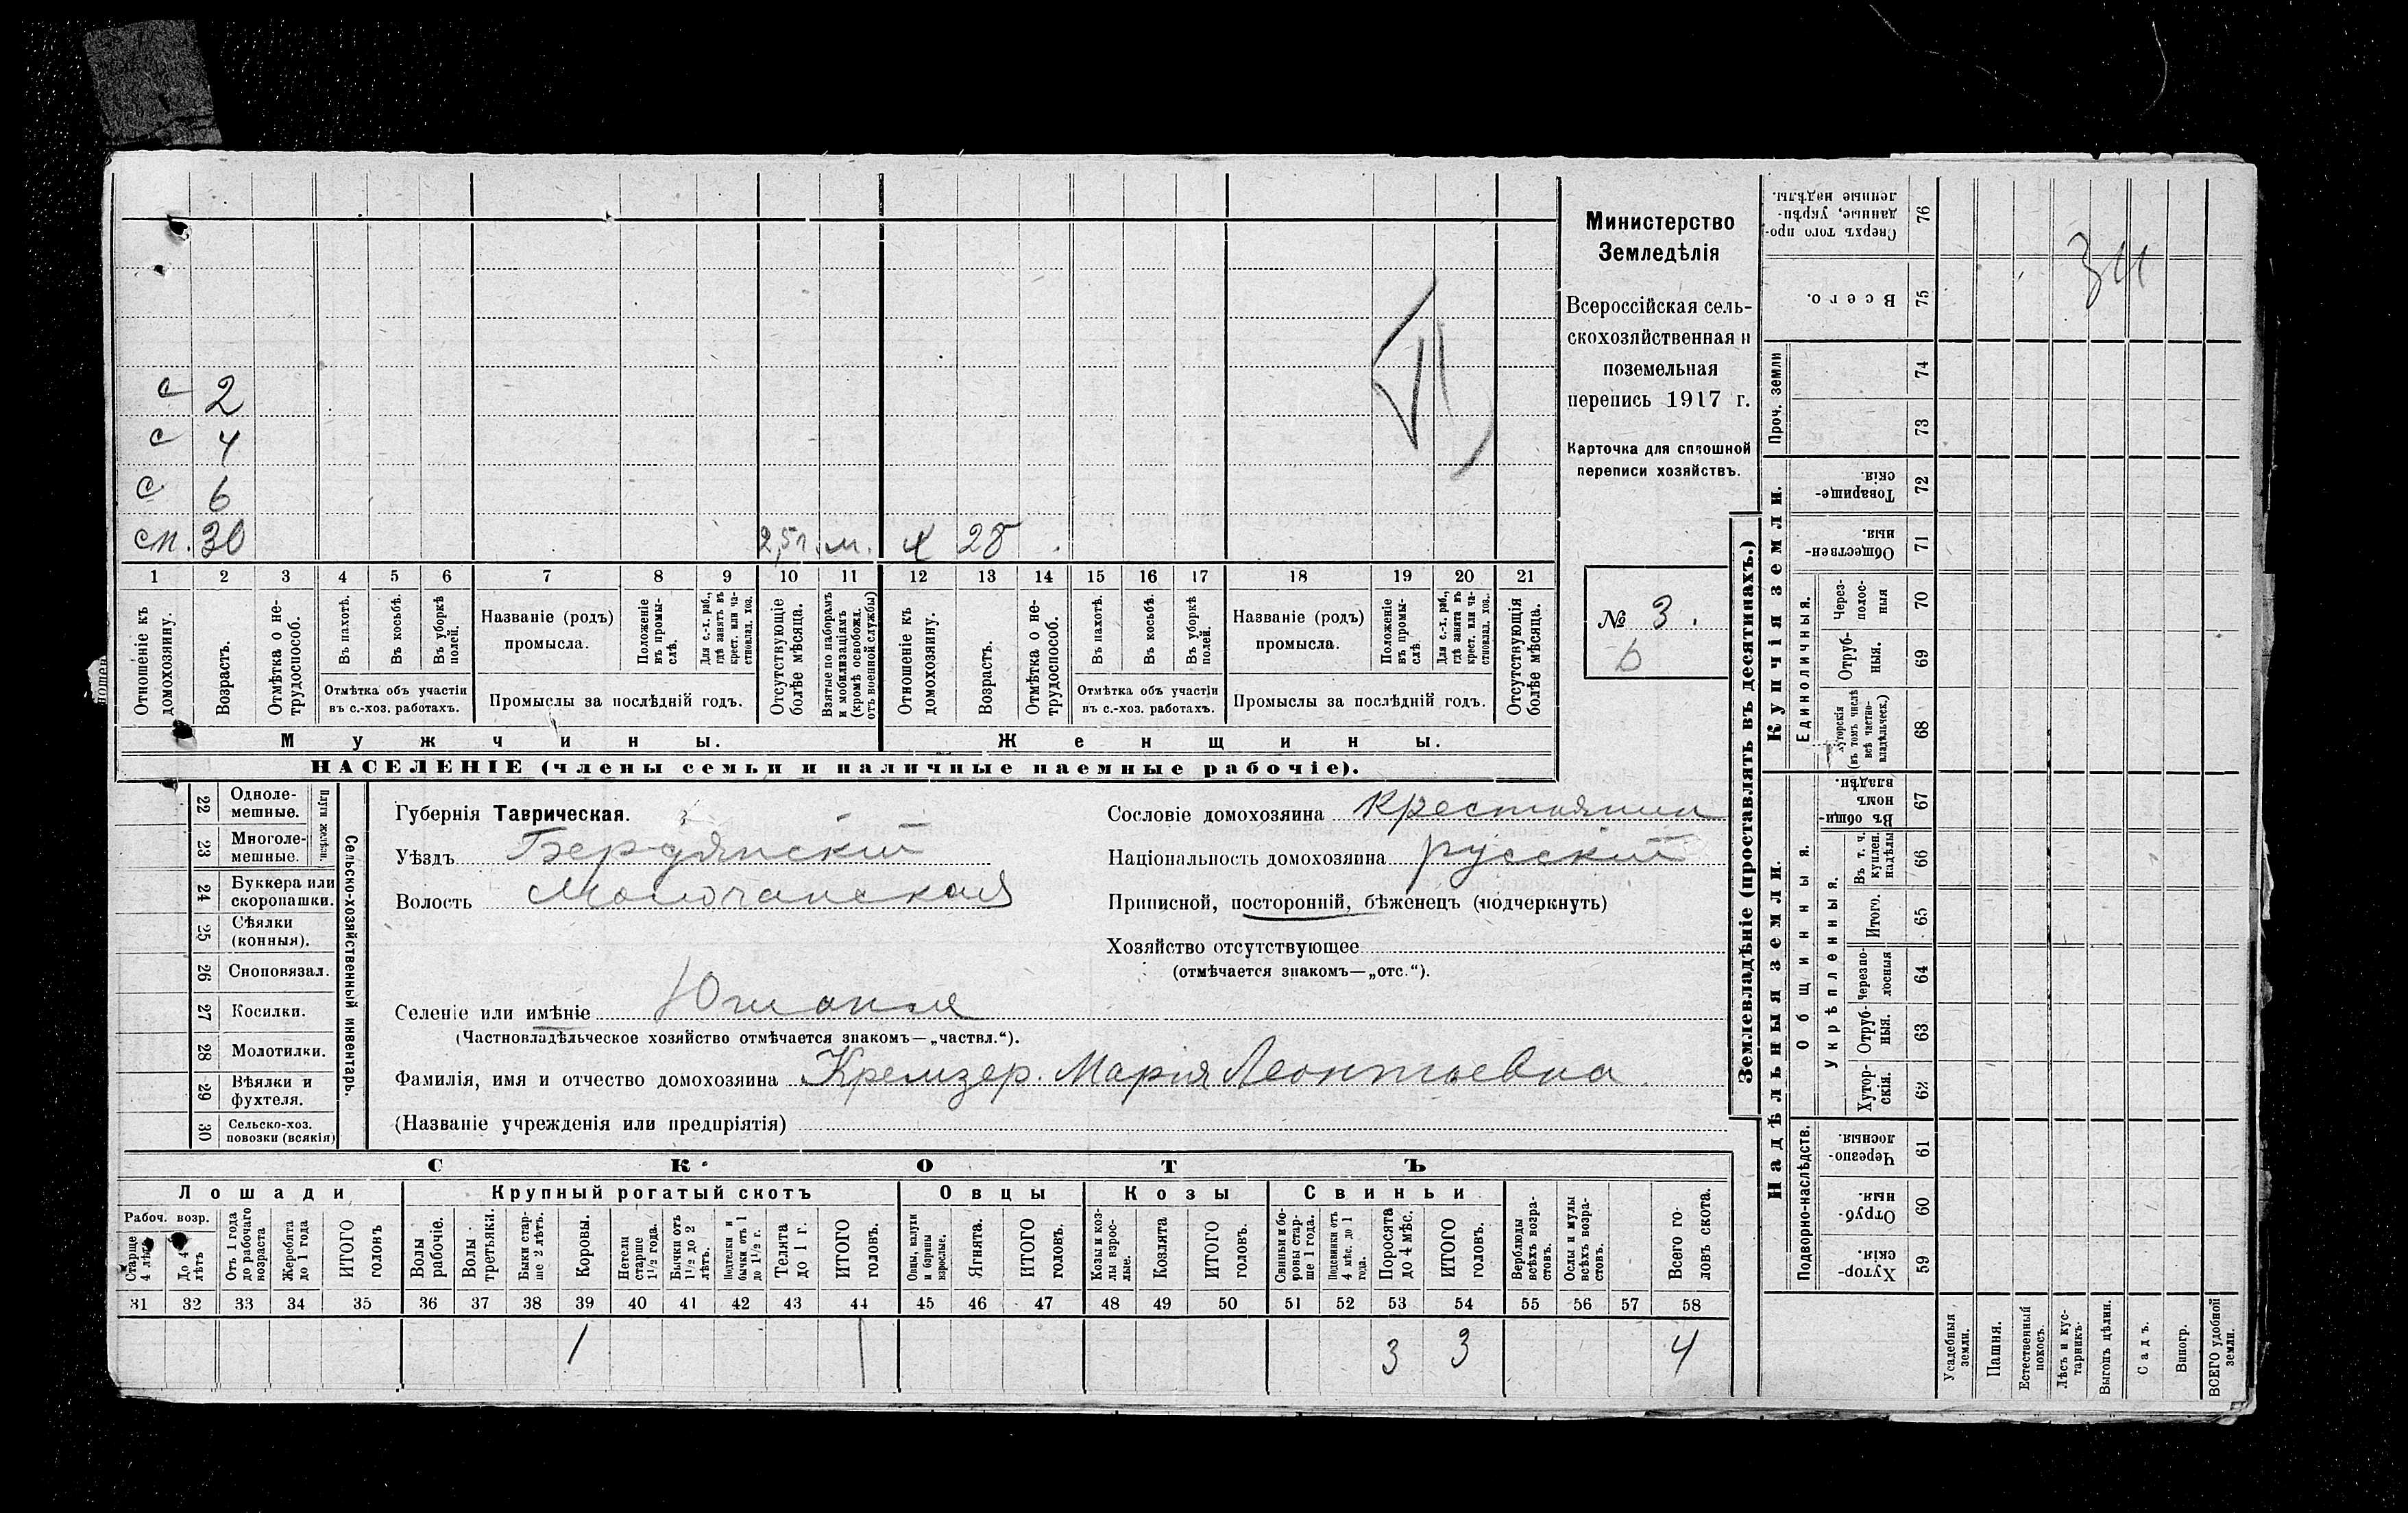 с 2
с 4
с 6
см. 30 2,5 г. м. х 28
1 2 3 4 5 6 7 8 9 10 11 12 13 14 15 16 17 18 19 20 21
Отношеніе къ домохозяину.
Возрастъ.
Отмѣтка о нетрудоспособ.
Въ пахотѣ.
Въ косьбѣ.
Въ уборкѣ полей.
Отмѣтка объ участіи
въ с.-хоз. работахъ.
Названіе (родъ)
промысла.
Положеніе въ промыслѣ.
Для с.-х. раб., гдѣ занятъ въ крест. или частновлад. хоз.
Промыслы за послѣдній годъ.
Отсутствующіе болѣе мѣсяца.
Взятые по наборамъ и мобилизаціямъ (кромѣ освобожд. отъ военной службы)
Отношеніе къ домохозяину.
Возрастъ.
Отмѣтка о нетрудоспособ.
Въ пахотѣ.
Въ косьбѣ.
Въ уборкѣ полей.
Отмѣтка объ участіи
въ с.-хоз. работахъ.
Названіе (родъ)
промысла.
Положеніе въ промыслѣ
Для с.-х. раб., гдѣ занята въ крест. или частновлад. хоз.
Промыслы за послѣдній годъ.
Отсутствующія болѣе мѣсяца.
Мужчины. Женщины.
НАСЕЛЕНІЕ (члены семьи и наличные наемные рабочіе).
Министерство
Земледѣлія
Всероссійская сель-
скохозяйственная и
поземельная
перепись 1917 г.
Карточка для сплошной
переписи хозяйствъ.
№ 3.
6
22 Одноле-
мешные.
23 Многоле-
мешные.
Плуги желѣзн.
24 Буккера или
скоропашки.
25 Сѣялки
(конныя).
26 Сноповязал.
27 Косилки.
28 Молотилки.
29 Вѣялки и
фухтеля.
30 Сельско-хоз.
повозки (всякія)
Сельско-хозяйственный инвентарь.
Губернія Таврическая.
Уѣздъ Бердянскій
Волость Молочанская
Селеніе или имѣніе Юшанле
(Частновладѣльческое хозяйство отмѣчается знакомъ—„частвл.“).
Фамилія, имя и отчество домохозяина Кремзер Мария Леонтьевна
(Названіе учрежденія или предпріятія)
Сословіе домохозяина крестьянин
Національность домохозяина русскій
Приписной, посторонній, бѣженецъ (подчеркнуть)
Хозяйство отсутствующее
(отмѣчается знакомъ—„отс.“).
СКОТЪ
Лошади Крупный рогатый скотъ Овцы Козы Свиньи
Рабоч. возр.
Старше 4 лѣтъ
До 4 лѣтъ
Отъ 1 года до рабочаго возраста
Жеребята до 1 года
ИТОГО головъ
Волы рабочіе.
Волы третьяки.
Быки старше 2 лѣтъ.
Коровы.
Нетели старше 1½ года.
Бычки отъ 1½ до 2 лѣтъ.
Подтелки и бычки отъ 1 до 1½ г.
Телята до 1 г.
ИТОГО головъ.
Овцы, валухи и бараны взрослые.
Ягнята.
ИТОГО головъ.
Козы и козлы взрослые.
Козлята
ИТОГО головъ.
Свиньи и боровы старше 1 года.
Подсвинки отъ 4 мѣс. до 1 года.
Поросята до 4 мѣс.
ИТОГО головъ.
Верблюды всѣхъ возрастовъ.
Ослы и мулы всѣхъ возрастовъ.
Всего головъ скота.
31 32 33 34 35 36 37 38 39 40 41 42 43 44 45 46 47 48 49 50 51 52 53 54 55 56 57 58
1 1 3 3 4
Землевладѣніе (проставлять въ десятинахъ.)
Купчія земли.
Надѣльныя земли.
Сверхъ того проданные, укрѣпленные надѣлы. 76
Всего. 75
Проч. земли 74
73
Товарищескія. 72
Общественныя 71
Единоличныя.
Черезполосныя 70
Отрубныя. 69
Хуторскія (въ томъ числѣ всѣ частновладѣльческ.) 68
Общинныя.
Въ общинномъ владѣн. 67
Укрѣпленныя.
Въ т. ч. куплен. надѣлы 66
Итого. 65
Черезполосныя 64
Отрубныя. 63
Хуторскія. 62
Подворно-наслѣдств.
Черезполосныя. 61
Отрубныя. 60
Хуторскія. 59
Усадебныя земли.
Пашня.
Естественный покосъ.
Лѣсъ и кустарникъ.
Выгонъ цѣлин.
Садъ.
Виногр.
ВСЕГО удобной земли.